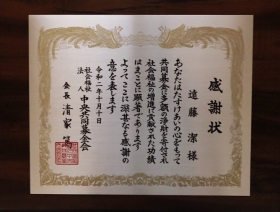 感謝状
遠藤 潔 様
あなたはたすけあいの心をもって
共同募金に多額の浄財を寄付され
社会福祉の増進に貢献された功績
はまことに顕著であります
よってここに深甚なる感謝の
意を表します
令和二年十月十日
社会福祉法人 中央共同募金会
会長 清家 篤